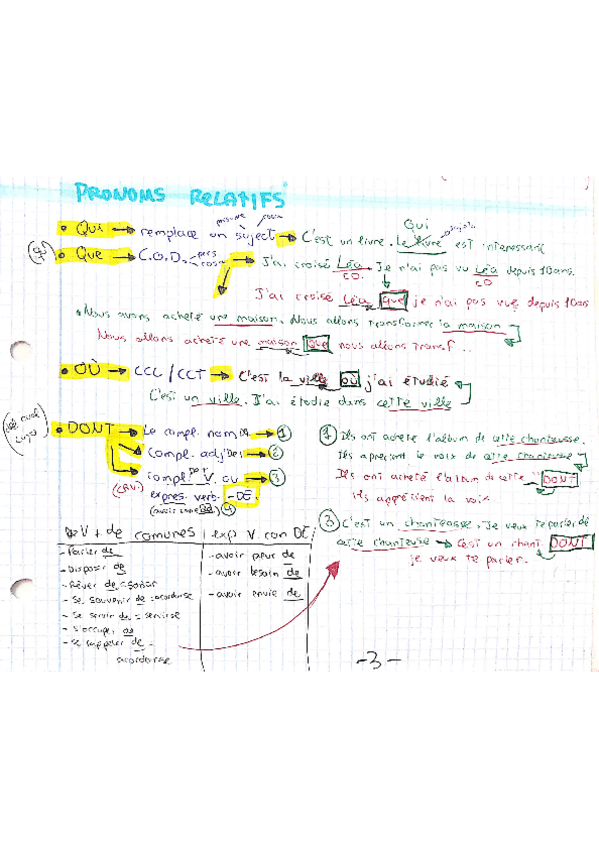 PRONOMS RELATIFS
• Qui → remplace un sujet → C'est un livre. Le livre est interessant
personne cosa
Qui
sujeto
• Que → C.O.D. pers cosa → J'ai croisé Léa. Je n'ai pas vu Léa depuis 10 ans.
CO CO
J'ai croisé Léa que je n'ai pas vue depuis 10 ans
• Nous avons acheté une maison. Nous allons transformer la maison
Nous allons acheté une maison que nous allons transf...
• OÙ → CCL / CCT → C'est la ville où j'ai étudié
C'est un ville. J'ai étudié dans cette ville
• DONT → Le compl. nom DE → 1
Compl. adj DE → 2
compl. V. ou → 3
(CRV) expres. verb. - DE.
4
1 Ils ont acheté l'album de cette chanteuse.
Ils apprecient le voix de cette chanteuse
Ils ont acheté l'album de cette DONT
ils apprécient la voix
3 C'est un chanteuse. Je veux te parler de
cette chanteuse → C'est un chant DONT
je veux te parler.
V + de comunes | exp V con DE
- Parler de
- Disposer de
- Rêver de = soñar
- Se souvenir de = acordarse
- Se servir de = servirse
- S'occuper de
- se rappeler de -
acordarse
- avoir peur de
- avoir besoin de
- avoir envie de
-3-